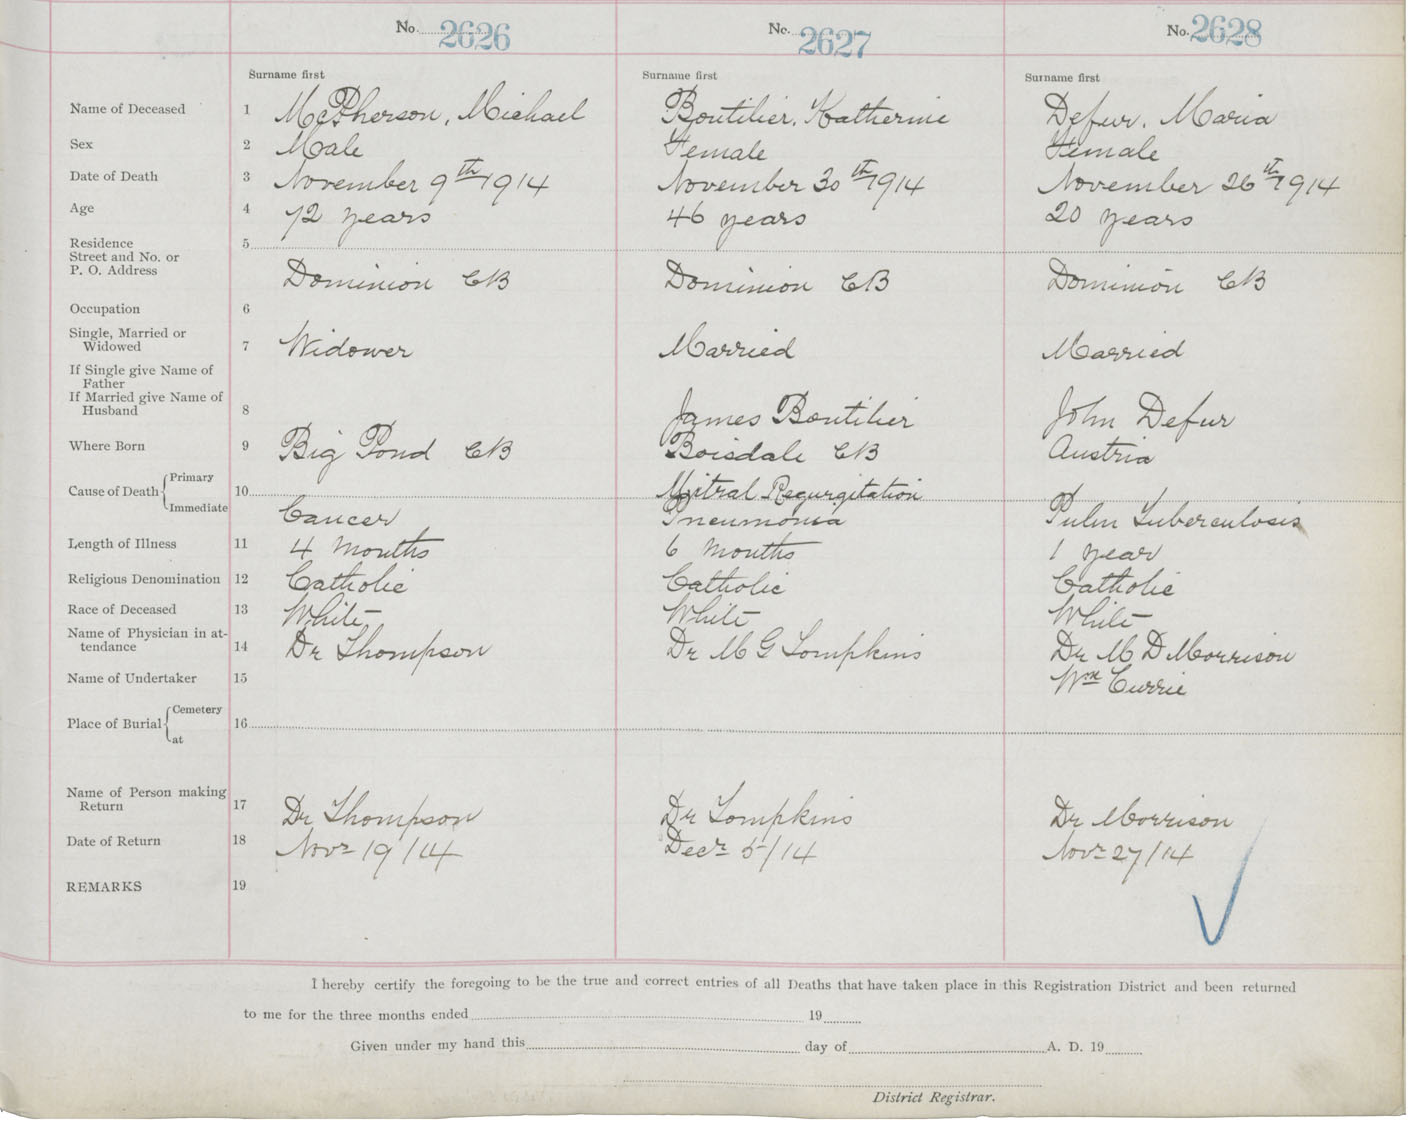 No. 2626 No. 2627 No. 2628
Surname first Surname first Surname first
Name of Deceased 1 McPherson, Michael Boutilier, Katherine Defur, Maria
Sex 2 Male Female Female
Date of Death 3 November 9th 1914 November 30th 1914 November 26th 1914
Age 4 72 years 46 years 20 years
Residence 5
Street and No. or
P. O. Address Dominion CB Dominion CB Dominion CB
Occupation 6
Single, Married or
Widowed 7 Widower Married Married
If Single give Name of
Father
If Married give Name of
Husband 8 James Boutilier John Defur
Where Born 9 Big Pond CB Boisdale CB Austria
Cause of Death { Primary 10 Mitral Regurgitation
Immediate Cancer Pneumonia Pulm Tuberculosis
Length of Illness 11 4 months 6 months 1 year
Religious Denomination 12 Catholic Catholic Catholic
Race of Deceased 13 White White White
Name of Physician in at-
tendance 14 Dr Thompson Dr M G Tompkins Dr M D Morrison
Name of Undertaker 15 Wm Currie
Place of Burial { Cemetery 16
at
Name of Person making
Return 17 Dr Thompson Dr Tompkins Dr Morrison
Date of Return 18 Novr 19/14 Decr 5/14 Novr 27/14
REMARKS 19
I hereby certify the foregoing to be the true and correct entries of all Deaths that have taken place in this Registration District and been returned
to me for the three months ended 19
Given under my hand this day of A. D. 19
District Registrar.